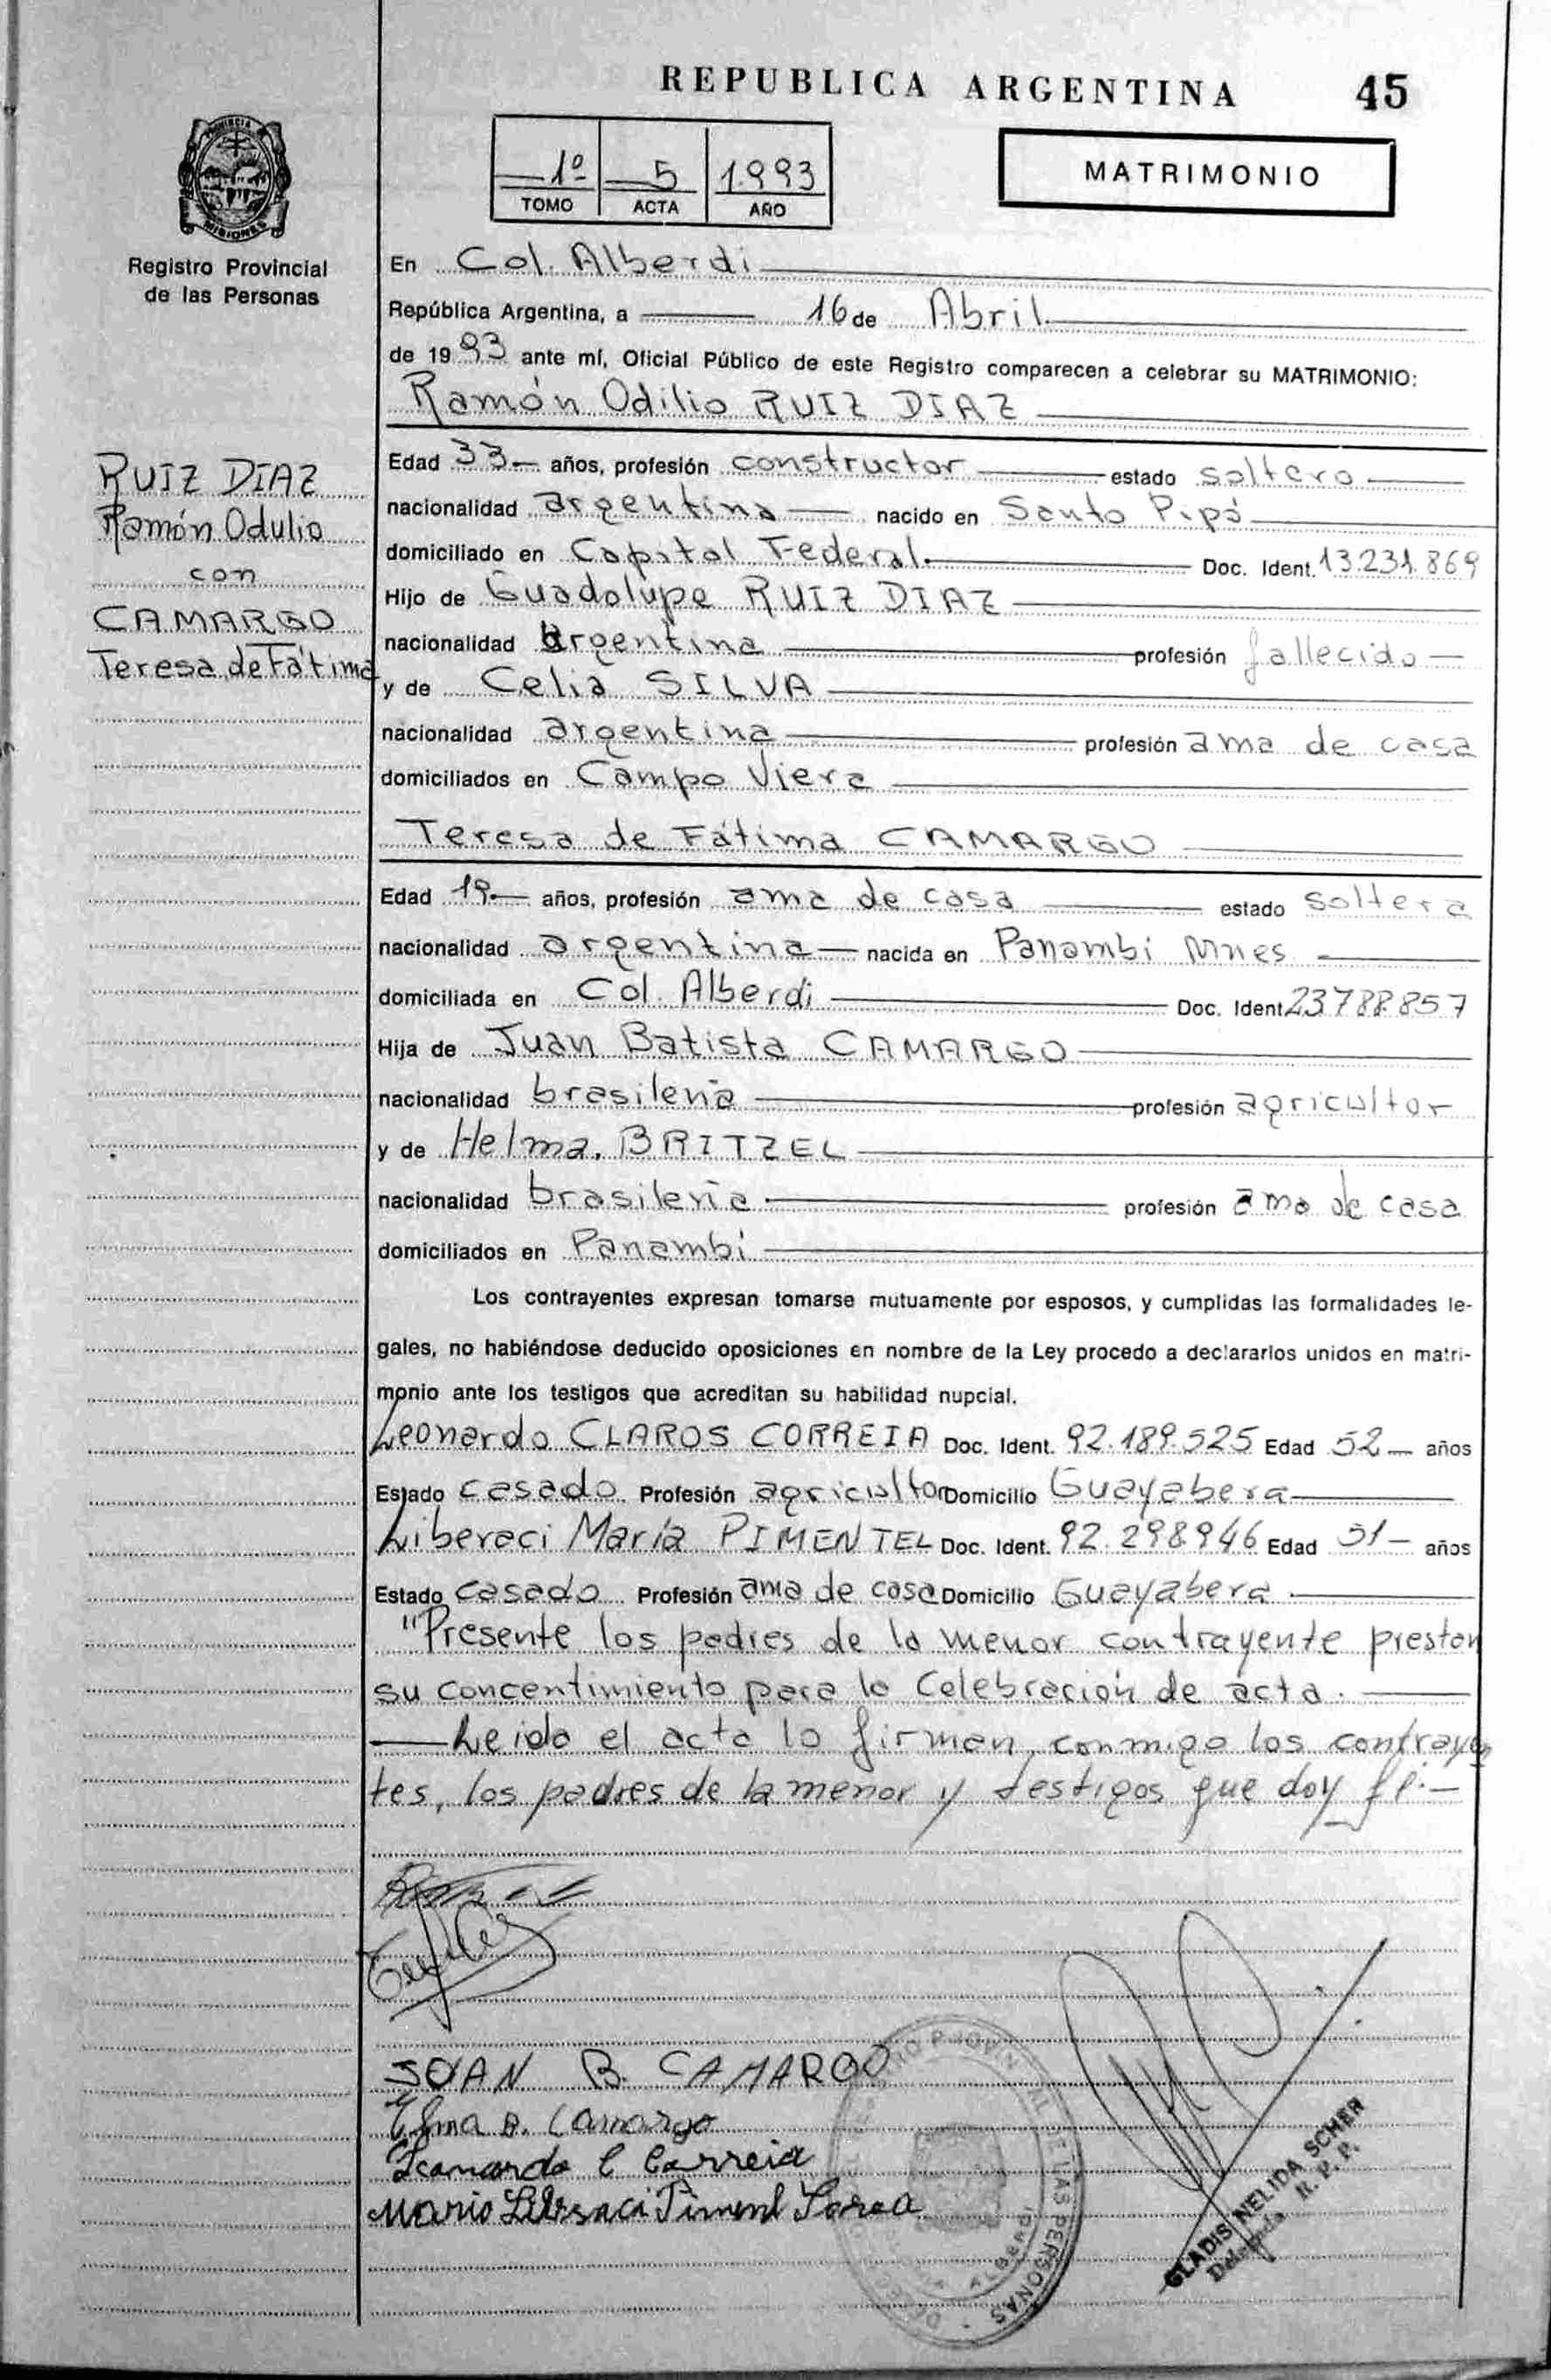 REPUBLICA ARGENTINA 45
PROVINCIA DE
MISIONES
Registro Provincial
de las Personas
1º 5 1.993
TOMO ACTA AÑO
MATRIMONIO
En Col. Alberdi
República Argentina, a 16 de Abril
de 1993 ante mí, Oficial Público de este Registro comparecen a celebrar su MATRIMONIO:
Ramón Odilio RUIZ DIAZ
RUIZ DIAZ
Ramón Odulio
con
CAMARGO
Teresa de Fátima
Edad 33 años, profesión constructor estado soltero
nacionalidad argentina nacido en Santo Pipó
domiciliado en Capital Federal. Doc. Ident. 13.231.869
Hijo de Guadalupe RUIZ DIAZ
nacionalidad argentina profesión fallecido
y de Celia SILVA
nacionalidad argentina profesión ama de casa
domiciliados en Campo Viera
Teresa de Fátima CAMARGO
Edad 19 años, profesión ama de casa estado soltera
nacionalidad argentina nacida en Panambi Mnes
domiciliada en Col. Alberdi Doc. Ident 23.788.857
Hija de Juan Batista CAMARGO
nacionalidad brasileña profesión agricultor
y de Helma. BRITZEL
nacionalidad brasileña profesión ama de casa
domiciliados en Panambí
Los contrayentes expresan tomarse mutuamente por esposos, y cumplidas las formalidades le-
gales, no habiéndose deducido oposiciones en nombre de la Ley procedo a declararlos unidos en matri-
monio ante los testigos que acreditan su habilidad nupcial.
Leonardo CLAROS CORREIA Doc. Ident. 92.189.525 Edad 52 años
Estado casado Profesión agricultor Domicilio Guayabera
Liberaci María PIMENTEL Doc. Ident. 92.298.946 Edad 51 años
Estado casado Profesión ama de casa Domicilio Guayabera
"Presente los padres de la menor contrayente prestan
su concentimiento para la Celebración de acta.
Leida el acta lo firman, conmigo los contrayen
tes, los padres de la menor y testigos que doy fé.
JUAN B. CAMARGO
Elma B. Camargo
Leonardo C Correia
Maria
REGISTRO PROVINCIAL DE LAS PERSONAS
ALBERDI
GLADIS NELIDA SCHER
Delegada R. P. P.